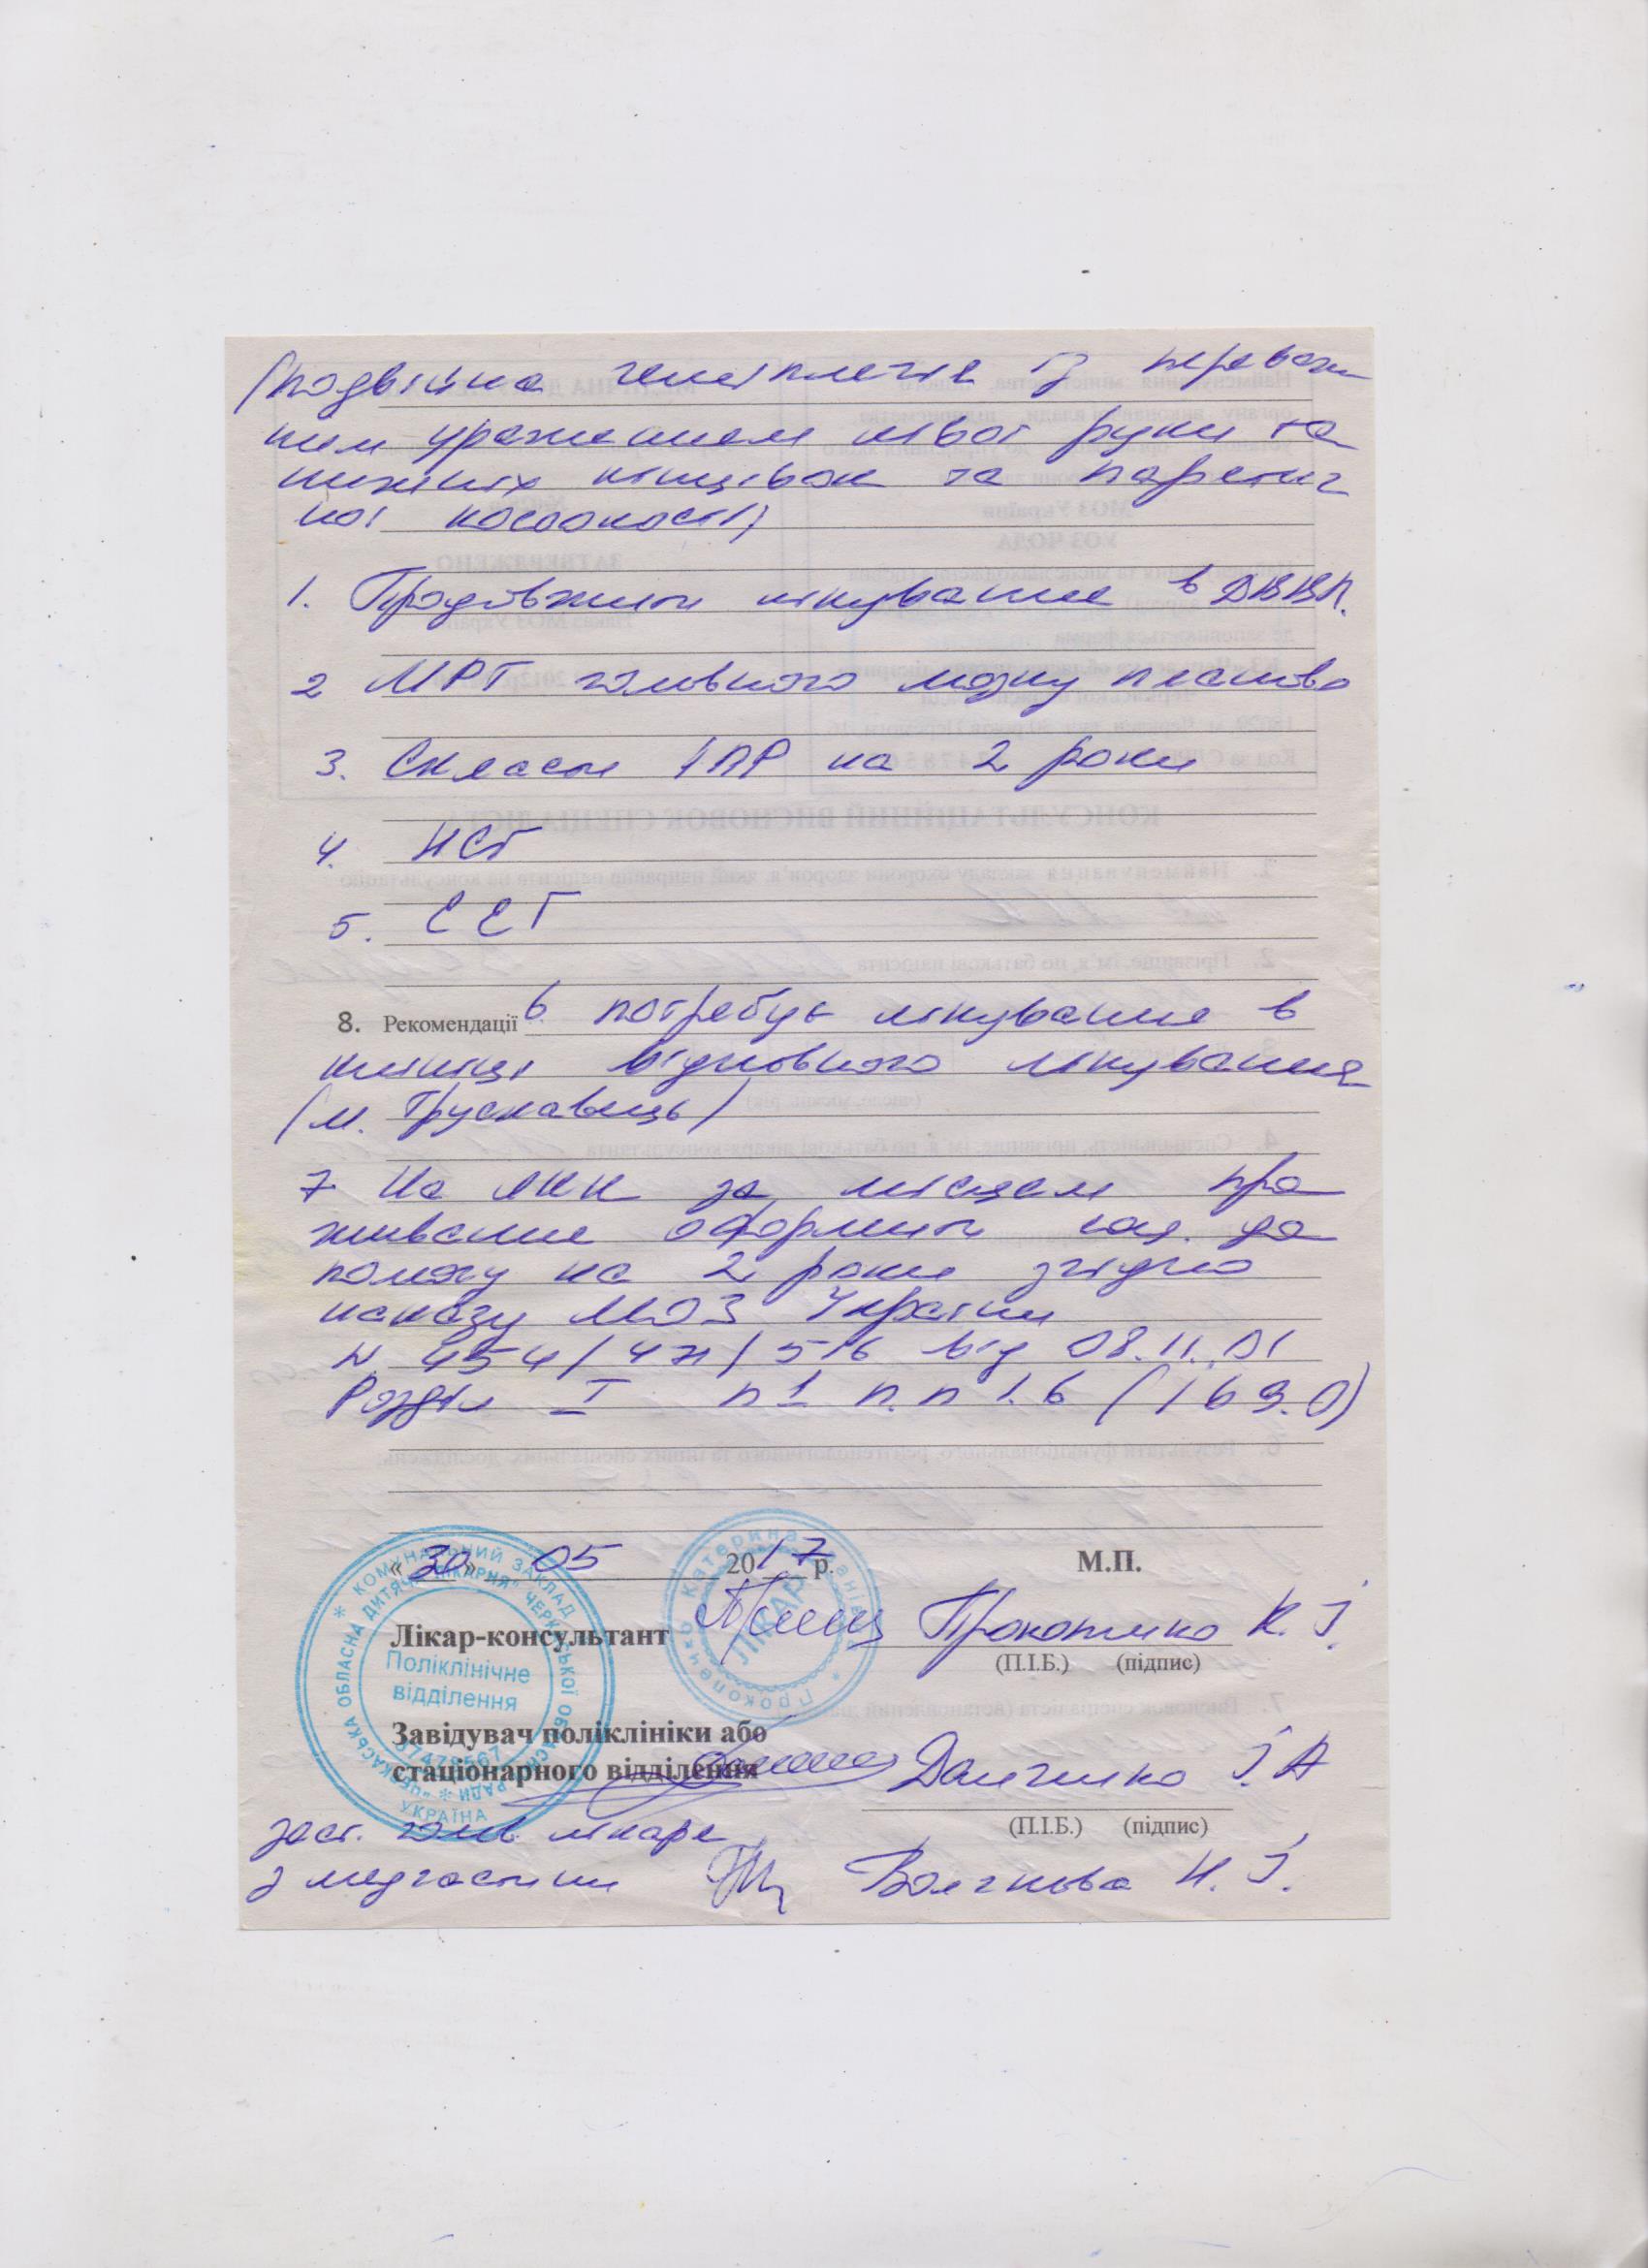 (подвійна геміплегія із переваж
ним ураженням лівої руки та
нижніх кінцівок та паретич
ної косоокості)
1. Продовжити лікування в ДВВП.
2 МРТ головного мозку планово
3. Скласти ІПР на 2 роки
4. НСГ
5. ЕЕГ
8. Рекомендації 6 потребує лікування в
клініці відновного лікування
(м. Трускавець)
7 На ЛКК за місцем про
живання оформити соц. до
помогу на 2 роки згідно
наказу МОЗ України
N 454/471/516 від 08.11.01
Розділ I п 1 п.п 1.6 (169.0)
«30» 05 2017 р. М.П.
Лікар-консультант Прокопенко К. І.
(П.І.Б.) (підпис)
Завідувач поліклініки або
стаціонарного відділення Данченко І. А
(П.І.Б.) (підпис)
заст. голов лікаря
з медчастини Волчкова Н. І.
КОМУНАЛЬНИЙ ЗАКЛАД
"ЧЕРКАСЬКА ОБЛАСНА ДИТЯЧА ЛІКАРНЯ" ЧЕРКАСЬКОЇ ОБЛАСНОЇ РАДИ
Поліклінічне
відділення
УКРАЇНА
Катерина
ЛІКАР